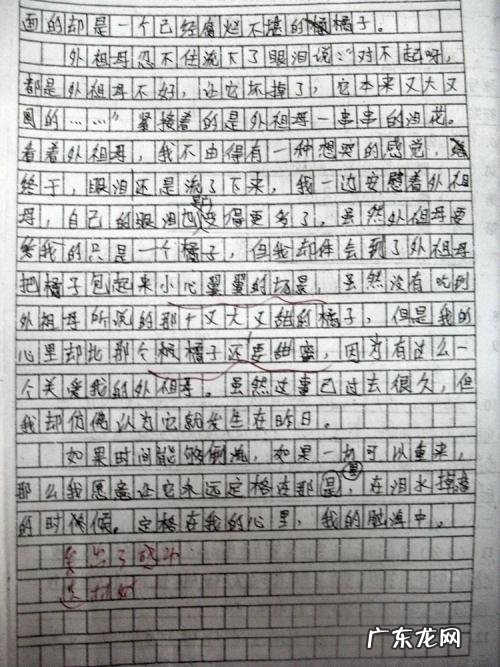 面的却是一个已经腐烂不堪的橘子。
外祖母忍不住流下了眼泪说:“对不起呀,
都是外祖母不好,让它坏掉了,它本来又大又
圆的……”紧接着的是外祖母一串串的泪花。
看着外祖母,我不由得有一种想哭的感觉,
终于,眼泪还是流了下来,我一边安慰着外祖
母,自己的眼泪也变得更多了。虽然外祖母要
给我的只是一个橘子,但我却体会到了外祖母
把橘子包起来小心翼翼的场景,虽然没有吃到
外祖母所说的那个又大又甜的橘子,但是我的
心里却比那个橘子还要甜蜜,因为有这么一
个关爱我的外祖母。虽然这事已过去很久,但
我却仿佛认为它就发生在昨日。
如果时间能够倒流,如果一切可以重来,
那么我愿意让它永远定格在那是,在泪水掉落
的时候。定格在我的心里,我的脑海中。
广东龙网